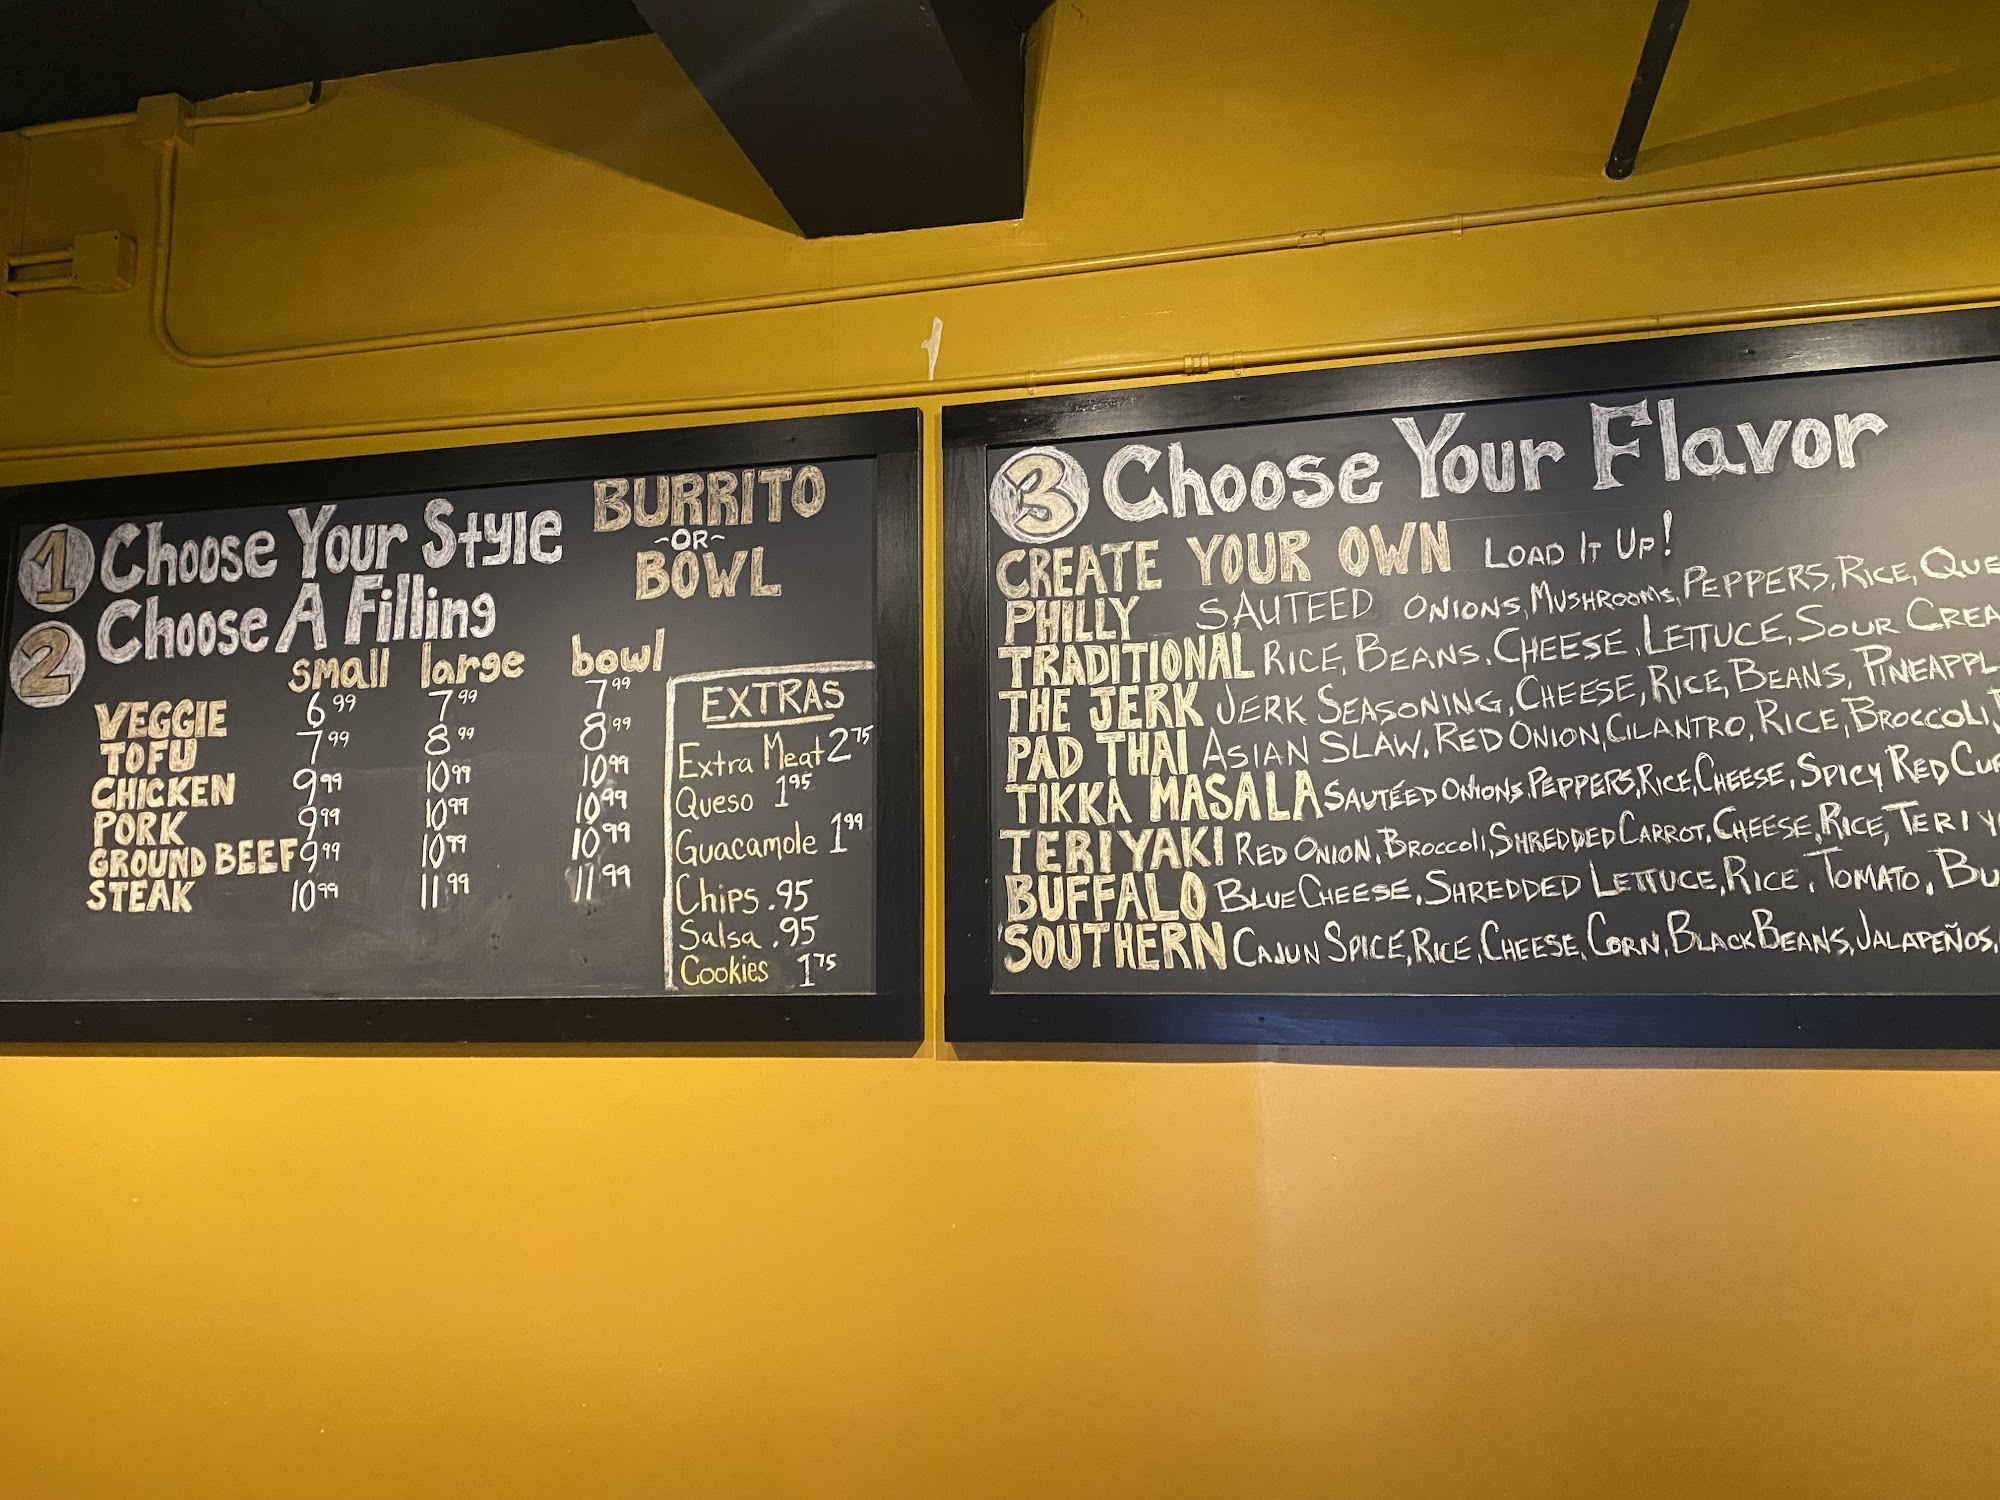 1 Choose Your Style
BURRITO
-OR-
BOWL
2 Choose A Filling
small large bowl
VEGGIE 6 99 7 99 7 99
TOFU 7 99 8 99 8 99
CHICKEN 9 99 10 99 10 99
PORK 9 99 10 99 10 99
GROUND BEEF 9 99 10 99 10 99
STEAK 10 99 11 99 11 99
EXTRAS
Extra Meat 2 75
Queso 1 95
Guacamole 1 99
Chips .95
Salsa .95
Cookies 1 75
3 Choose Your Flavor
CREATE YOUR OWN LOAD IT UP!
PHILLY SAUTEED ONIONS, MUSHROOMS, PEPPERS, RICE, QUE
TRADITIONAL RICE, BEANS, CHEESE, LETTUCE, SOUR CREA
THE JERK JERK SEASONING, CHEESE, RICE, BEANS, PINEAPPL
PAD THAI ASIAN SLAW, RED ONION, CILANTRO, RICE, BROCCOLI,
TIKKA MASALA SAUTÉED ONIONS, PEPPERS, RICE, CHEESE, SPICY RED CUR
TERIYAKI RED ONION, BROCCOLI, SHREDDED CARROT, CHEESE, RICE, TERIY
BUFFALO BLUE CHEESE, SHREDDED LETTUCE, RICE, TOMATO, BU
SOUTHERN CAJUN SPICE, RICE, CHEESE, CORN, BLACK BEANS, JALAPEÑOS,